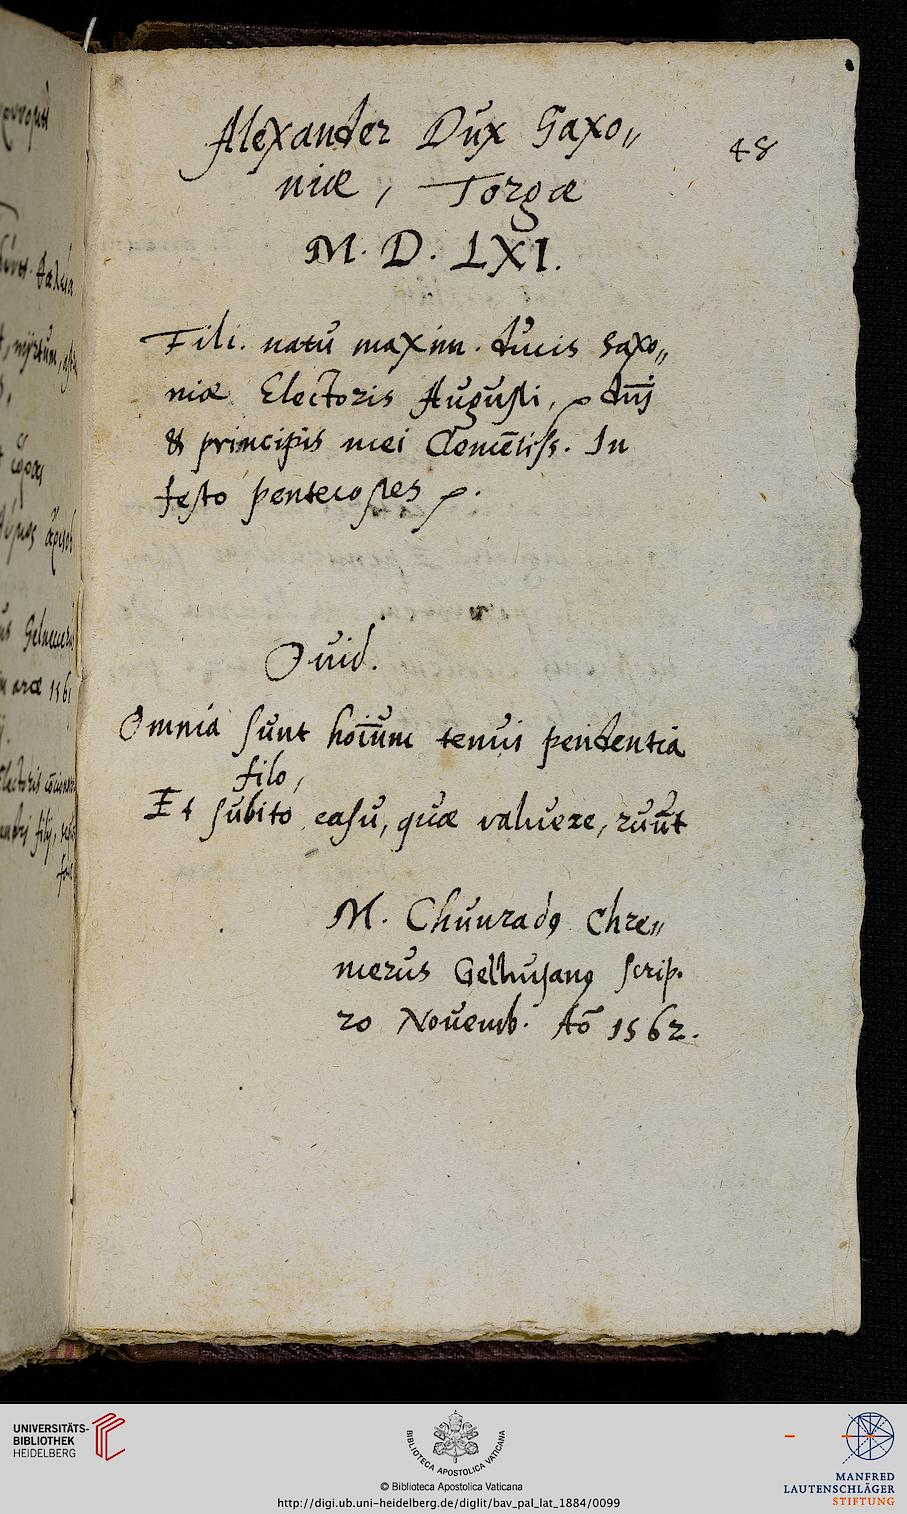 Alexander Dux Saxo„
niæ, Torgæ
48
M. D. LXI.
Fili. natu maxim. ducis Saxo„
niæ Electoris Augusti, dnj
& principis mei Clemẽtiss. In
festo pentecostes
Ovid.
Omnia sunt hoĩum tenui pendentia
filo,
Et subito casu, quæ valuere, ruũt
M. Chunradꝰ Chre„
merus Gelhusanꝰ scrip.
20 Novemb. Aõ 1562.
UNIVERSITÄTS-
BIBLIOTHEK
HEIDELBERG
BIBLIOTECA APOSTOLICA VATICANA
© Biblioteca Apostolica Vaticana
http://digi.ub.uni-heidelberg.de/diglit/bav_pal_lat_1884/0099
MANFRED
LAUTENSCHLÄGER
STIFTUNG